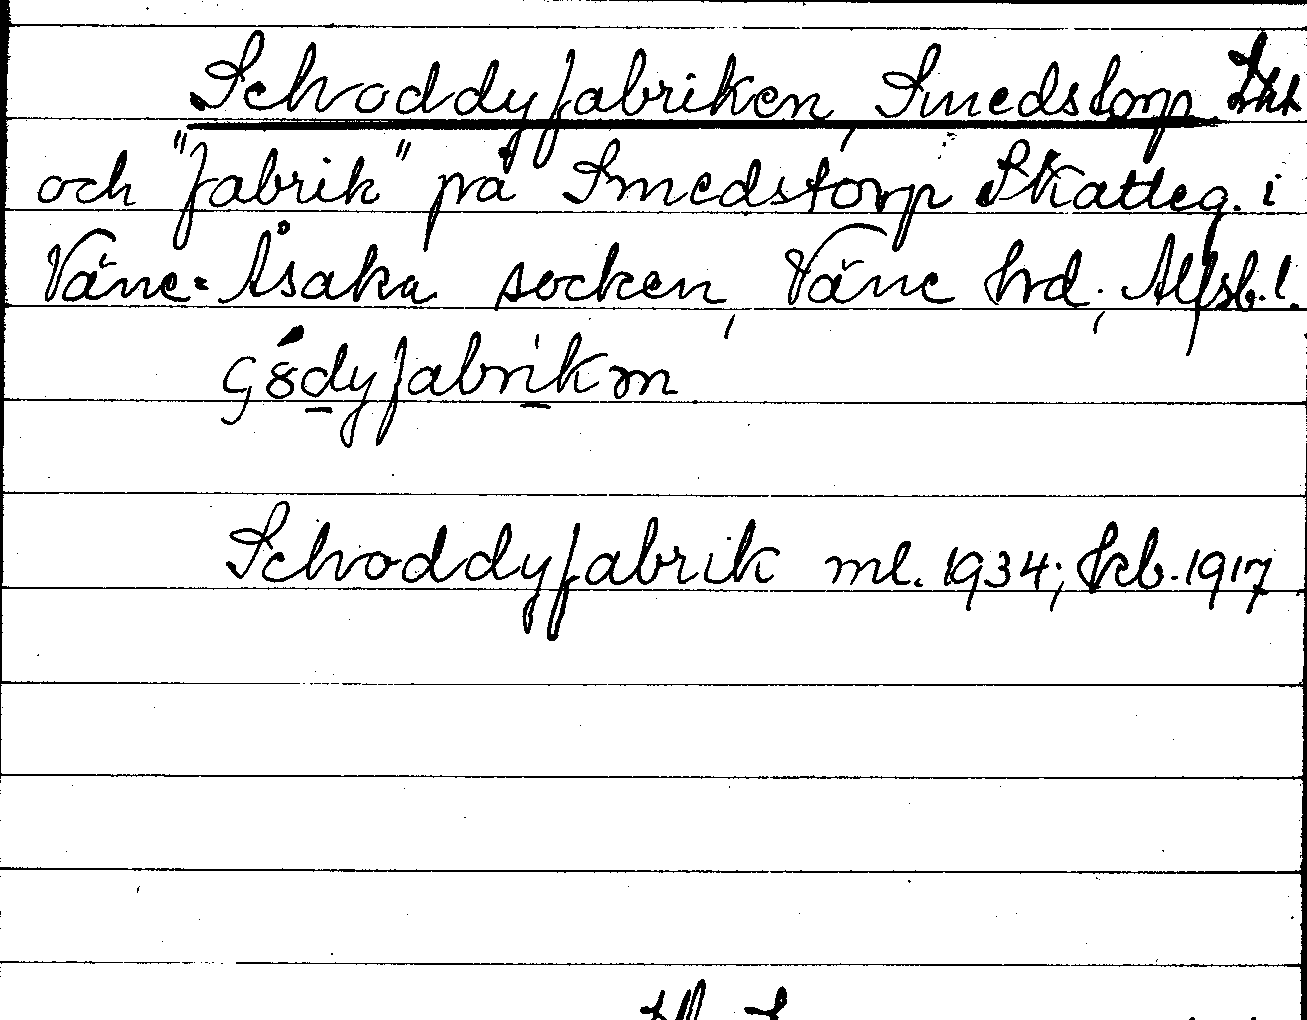 Schoddyfabriken, Smedstorp Lht
och "fabrik" på Smedstorp Skatteg. i
Väne-Åsaka socken, Väne hrd, Älfsb. l.
Schoddyfabrik ml. 1934; kb. 1917